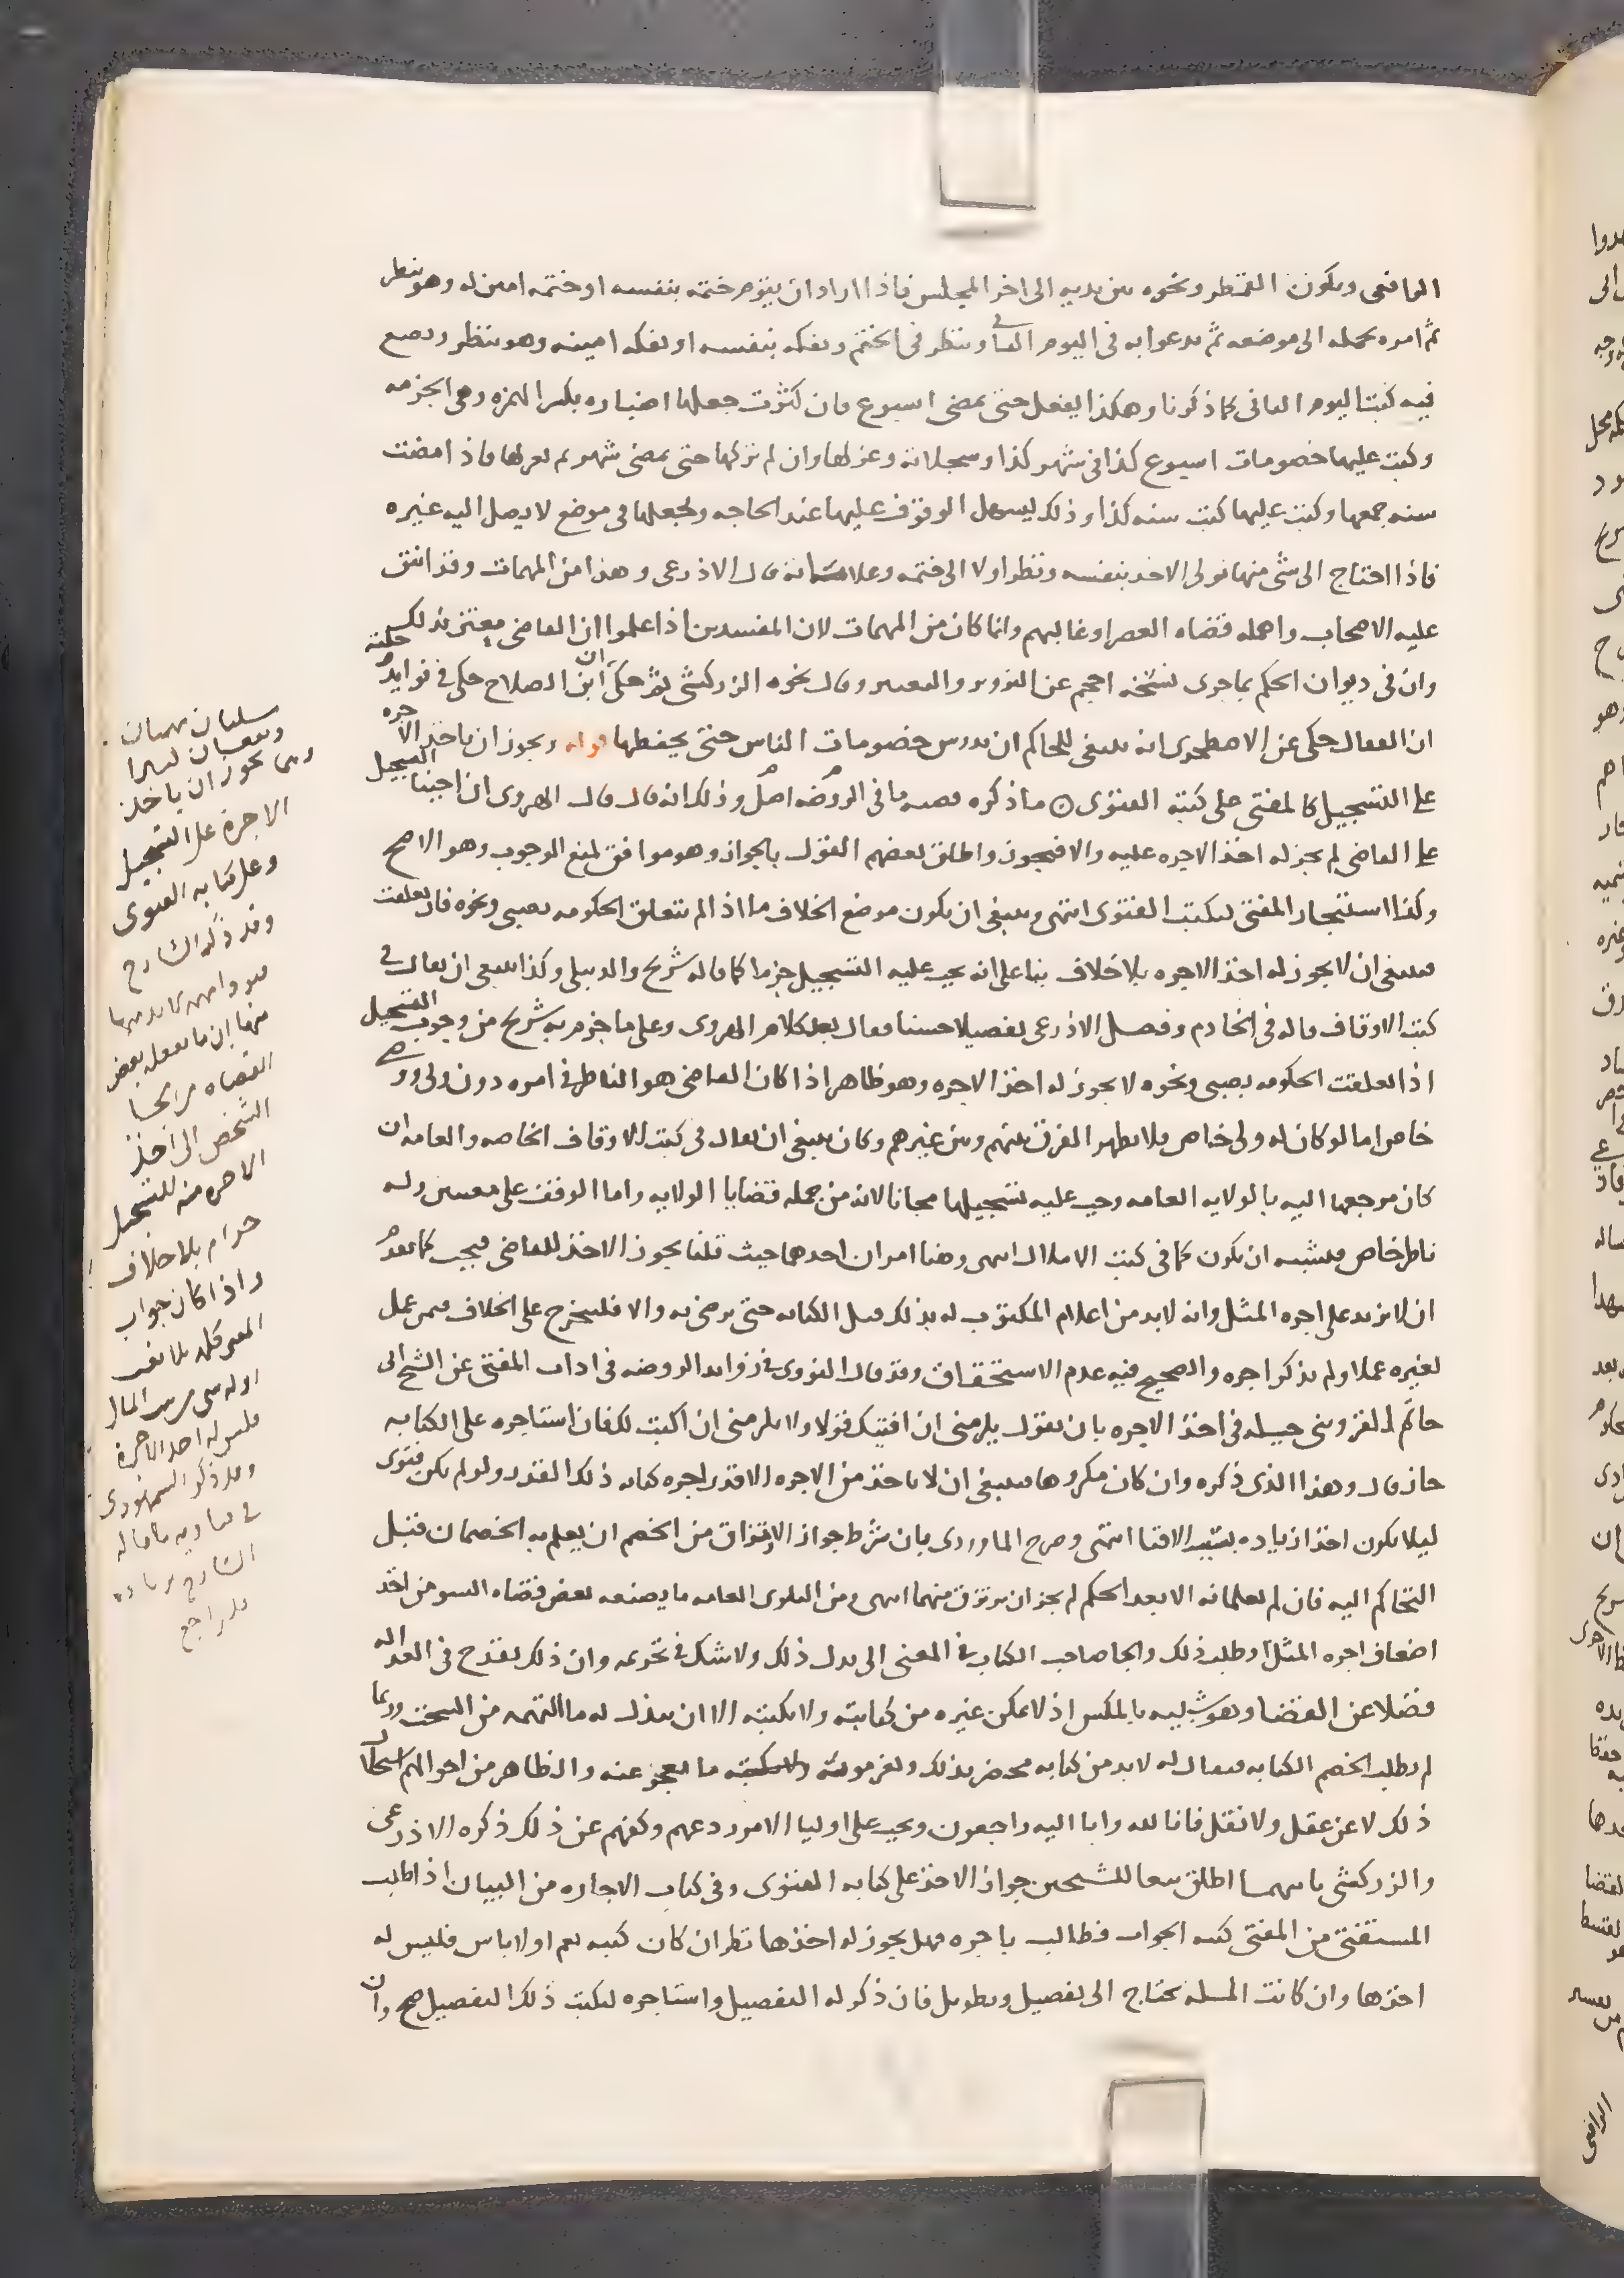 الرافعى ويكون القمطر ونحوه بين يديه الى اخر المجلس فاذا اراد ان يقوم ختمه بنفسه او ختمه امين له وهو ينظر
ثم امره بحمله الى موضعه ثم يدعوا به فى اليوم الثانى وينظر فى الختم ويفكه بنفسه او يفكه امينه وهو ينظر ويضع
فيه كتب اليوم الثانى كما ذكرنا وهكذا يفعل حتى يمضى اسبوع فان كثرت جعلها اضباره بكسر الهمزه وهى الحزمه
وكتب عليها خصومات اسبوع كذا فى شهر كذا وسجلاته وعزلها وان لم تركها حتى يمضى شهر ثم يعزلها فاذا مضت
سنه جمعها وكتب عليها كتب سنه كذا وذلك ليسهل الوقوف عليها عند الحاجه ويجعلها فى موضع لا يصل اليه غيره
فاذا احتاج الى شى منها تولى الاخذ بنفسه ونظر اولا الى ختمه وعلاماته قال الاذرعى وهذا من المهمات وقد اتفق
عليه الاصحاب واهمله قضاه العصر او غالبهم وانما كان من المهمات لان المفسدين اذا علموا ان القاضى معتن بذلك
وان فى ديوان الحكم بما جرى نسخه احجم عن التزوير والتغيير وقال نحوه الزركشى ثم حكى ان ابن الصلاح حكى فى فوايد رحلته
ان القفال حكى عن الاصطخرى انه ينبغى للحاكم ان يدرس خصومات الناس حتى يحفظها قوله ويجوز ان ياخذ الاجره
على التسجيل كالمفتى على كتبه الفتوى ما ذكره قصيه ما فى الروضه واصلها وذلك انه قال قال الهروى ان اوجبنا التسجيل
على القاضى لم يجز له اخذ الاجره عليه والا فيجوز واطلق بعضهم القول بالجواز وهو موافق لمنع الوجوب وهو الاصح
وكذا استئجار المفتى ليكتب الفتوى انتهى وينبغى ان يكون موضع الخلاف ما اذا لم يتعلق الحكومه بصبى ونحوه فان تعلقت
فينبغى ان لا يجوز له اخذ الاجره بلا خلاف بنا على انه يجب عليه التسجيل جزما كما قاله شريح والدبيلى وكذا ينبغى ان يقال فى
كتب الاوقاف قاله فى الخادم وفصل الاذرعى تفصيلا حسنا فقال بعد كلام الهروى وعلى ما جزم به شريح من وجوب التسجيل
اذا تعلقت الحكومه بصبى ونحوه لا يجوز له اخذ الاجره وهو ظاهر اذا كان القاضى هو الناظر فى امره دون ولى ووصى
خاص اما لو كان له ولى خاص فلا يظهر الفرق بينهم وبين غيرهم وكان ينبغى ان يقال فى كتب الاوقاف الخاصه والعامه ان
كان مرجعها اليه بالولايه العامه وجب عليه تسجيلها مجانا لانه من جمله قضايا الولايه واما الوقف على معينين وله
ناظر خاص فيشبه ان يكون كما فى كتب الاملاك انتهى وهنا امران احدهما حيث قلنا يجوز الاخذ للقاضى فيجب كما تقدم
ان لا يزيد على اجره المثل وانه لا بد من اعلام المكتوب له بذلك قبل الكتابه حتى يرضى به والا فليخرج على الخلاف فيمن عمل
لغيره عملا ولم يذكر اجره والصحيح فيه عدم الاستحقاق وقد قال النووى فى زوايد الروضه فى اداب المفتى عن الشيخ ابى
حاتم القزوينى حيله فى اخذ الاجره بان يقول يلزمنى ان افتيك قولا ولا يلزمنى ان اكتب لك فان استاجره على الكتابه
جاز قال وهذا الذى ذكره وان كان مكروها فينبغى ان لا ياخذ من الاجره الا قدر اجره كتابه ذلك القدر ولو لم يكن فتوى
ليلا يكون اخذ زياده بسبب الافتا انتهى وصرح الماوردى بان شرط جواز الارتزاق من الخصم ان يعلم به الخصمان قبل
التحاكم اليه فان لم يعلمانه الا بعد الحكم لم يجز ان يرتزق منهما انتهى ومن البلوى العامه ما يصنعه بعض قضاه السو من اخذ
اضعاف اجره المثل او طلب ذلك والجا صاحب الكتاب فى المعنى الى بذل ذلك ولا شك فى تحريمه وان ذلك يقدح فى العداله
فضلا عن القضا وهو شبيه بالمكس اذ لا يمكن غيره من كتابته ولا يكتبه الا ان يبذل له ما التمسه من السحت وربما
لم يطلب الخصم الكتابه فيقال له لا بد من كتابه محضر بذلك ويغرمونه ما يعجز عنه والظاهر من احوالهم استحلال
ذلك لا عن عقل ولا نقل فانا لله وانا اليه راجعون ويجب على اوليا الامور ردعهم وكفهم عن ذلك ذكره الاذرعى
والزركشى ثانيهما اطلق تبعا للشيخين جواز الاخذ على كتابه الفتوى وفى كتاب الاجاره من البيان اذا طلب
المستفتى من المفتى كتبه الجواب فطالب باجره فهل يجوز له اخذها نظر ان كان كتبه نعم او لا باس فليس له
اخذها وان كانت المسله يحتاج الى تفصيل وتطويل فان ذكر له التفصيل واستاجره ليكتب ذلك التفصيل صح وان
يجوز ان ياخذ
الاجرة على التسجيل
وعلى كتابه الفتوى
وقد ذكر الشارح
منها ان ما يفعله بعض
القضاه من الجا
الشخص الى اخذ
الاجره منه للتسجيل
حرام بلا خلاف
واذا كان جواب
المفتى كلمه بلا او نعم
او له شى من بيت المال
فليس له اخذ الاجرة
وقد ذكر السمهودى
فى فتاويه ما قاله
الشارح بزياده
فليراجع